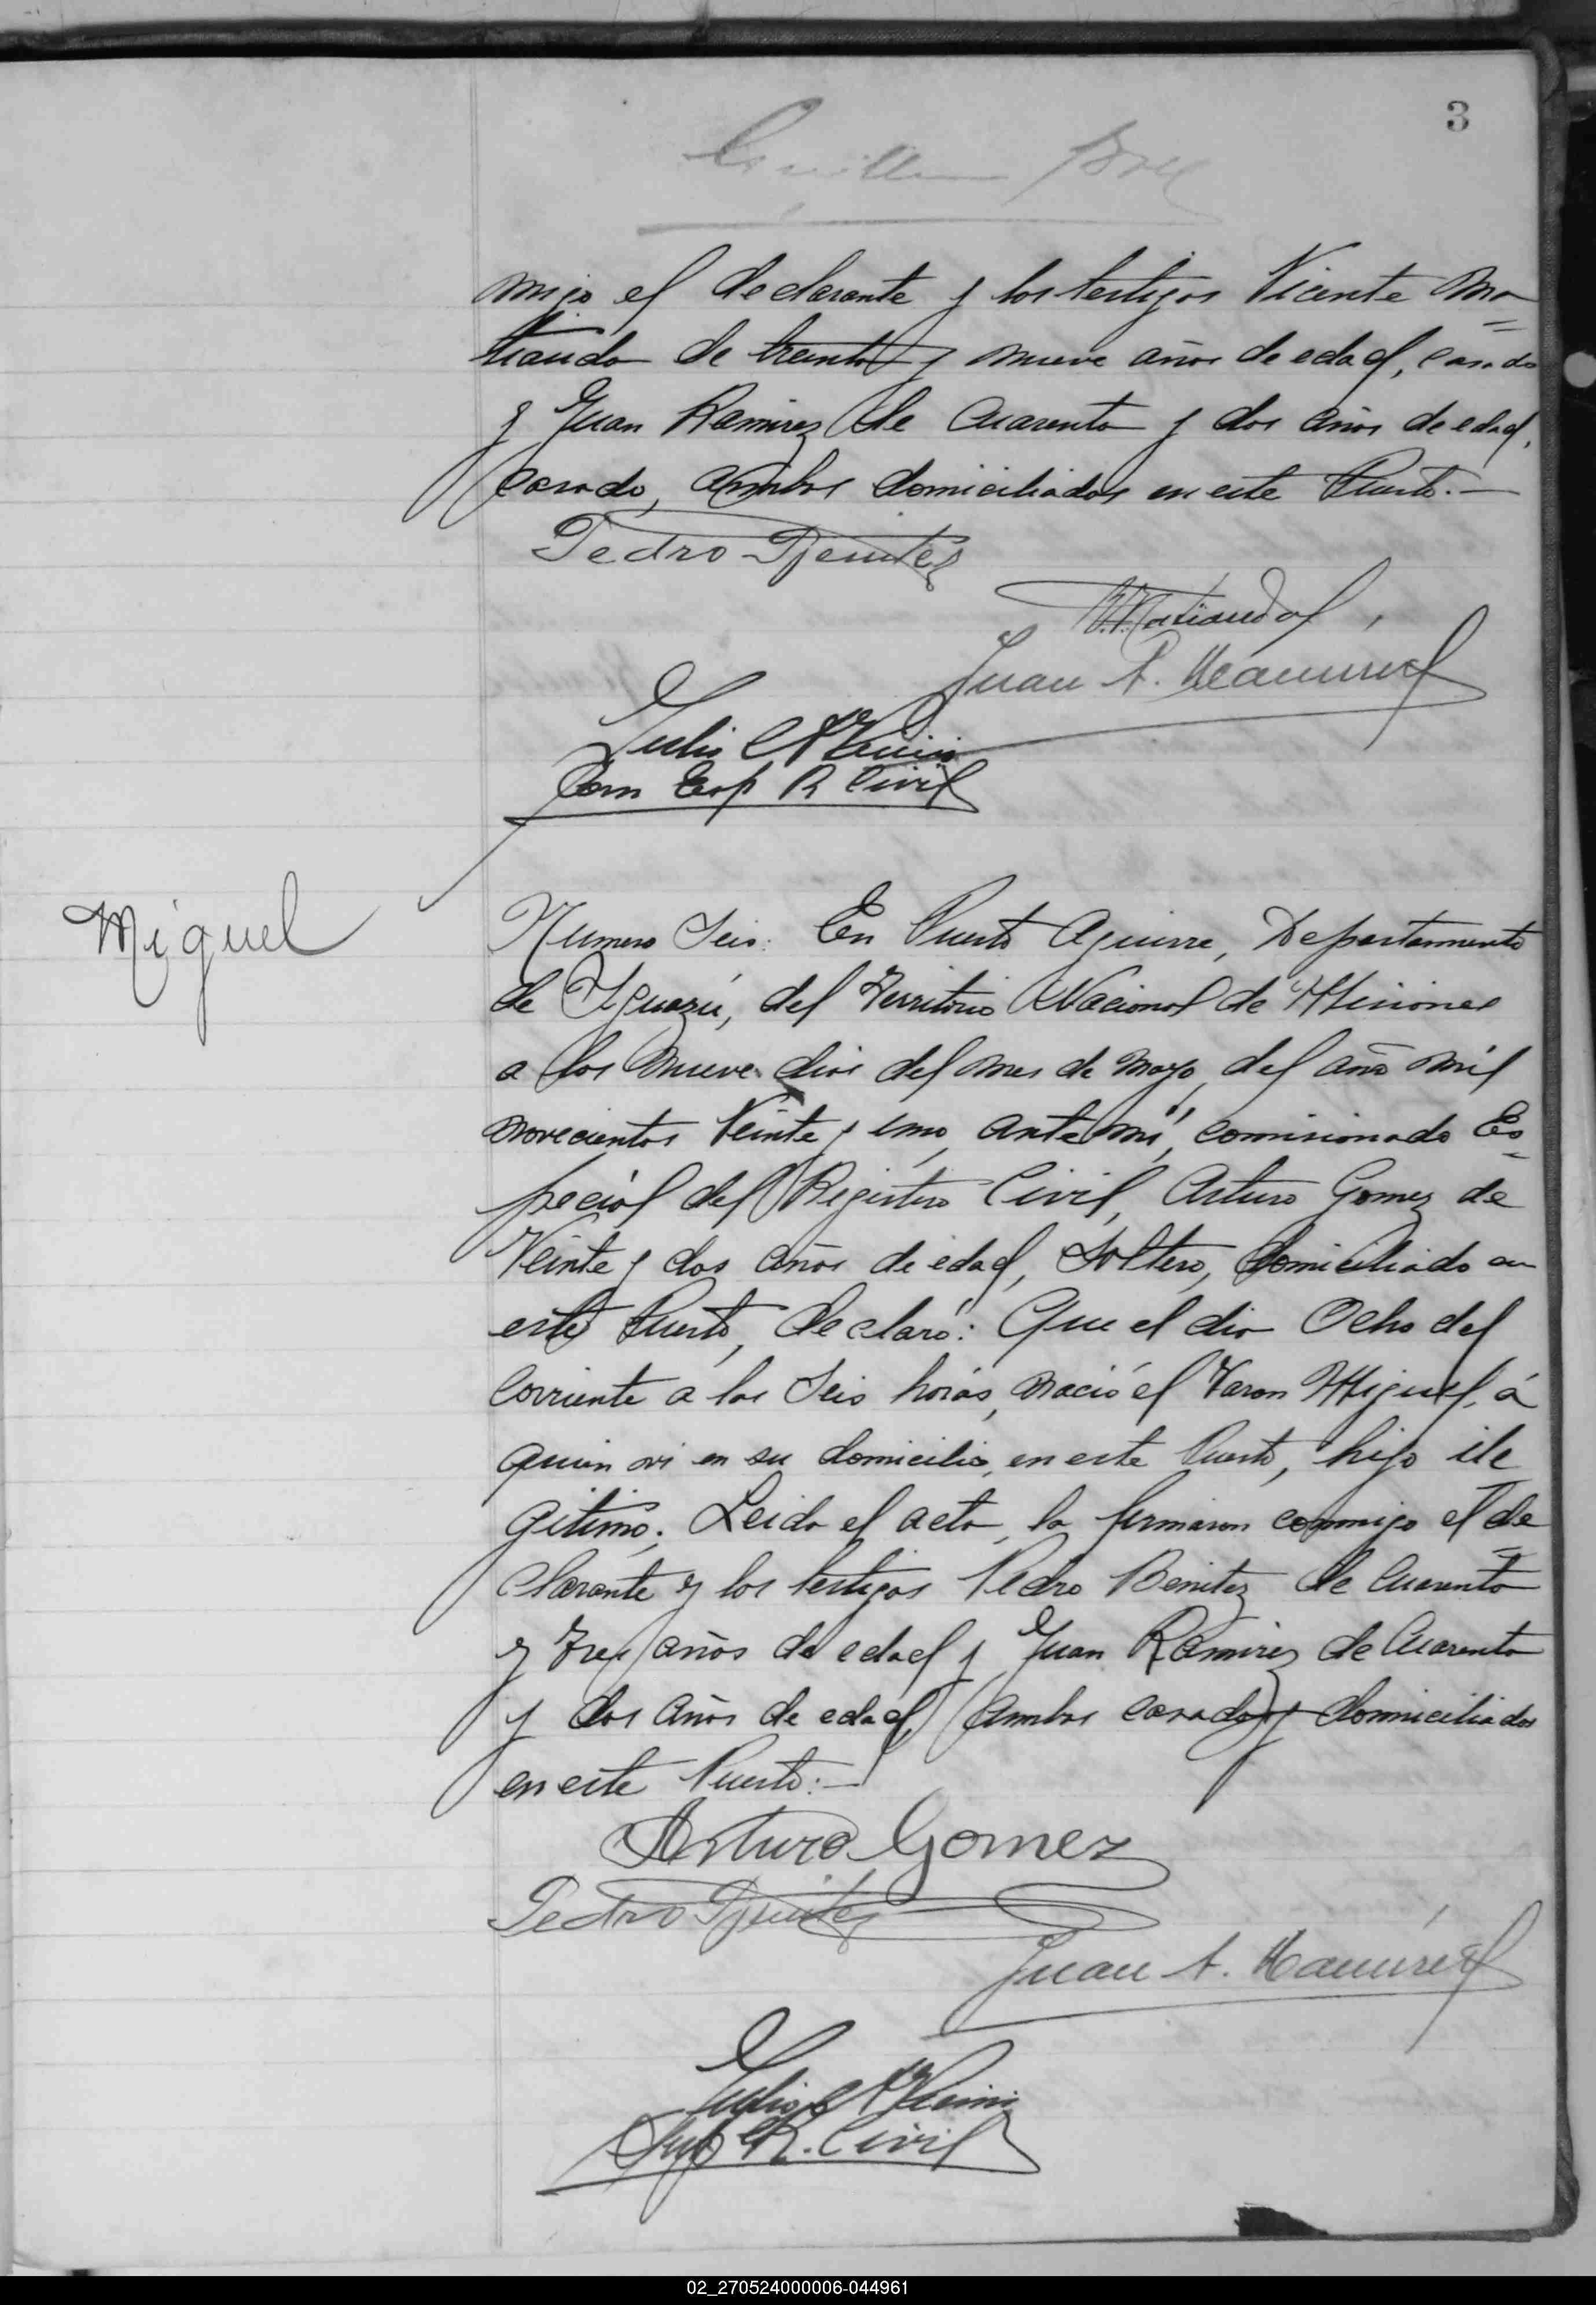 3
migo el declarante y los testigos Vicente Ma=
tiauda de treinta y nueve años de edad, casado
y Juan Ramirez de cuarenta y dos años de edad,
casado, ambos domiciliados en este Puerto.—
Pedro Benitez
V. Matiauda
Juan A. Ramirez
Julio
Com Esp R Civil
Miguel
Numero Seis: En Puerto Aguirre, Departamento
de Yguazú, del Territorio Nacional de Misiones
a los nueve dias del mes de Mayo, del año mil
novecientos Veinte y uno, ante mí, comisionado Es=
pecial del Registro Civil, Arturo Gomez de
Veinte y dos años de edad, Soltero, domiciliado en
este Puerto, declaró: Que el dia Ocho del
corriente a las Seis horas, nació el Varon Miguel, á
quien vi en su domicilio, en este Puerto, hijo ile
gitimo. Leida el acta, la firmaron conmigo el de=
clarante y los testigos Pedro Benitez de cuarenta
y Tres años de edad y Juan Ramirez de Cuarenta
y dos años de edad, ambos casados y domiciliados
en este Puerto:—
Arturo Gomez
Pedro Benitez
Juan A. Ramirez
Julio
R. Civil
02_270524000006-044961